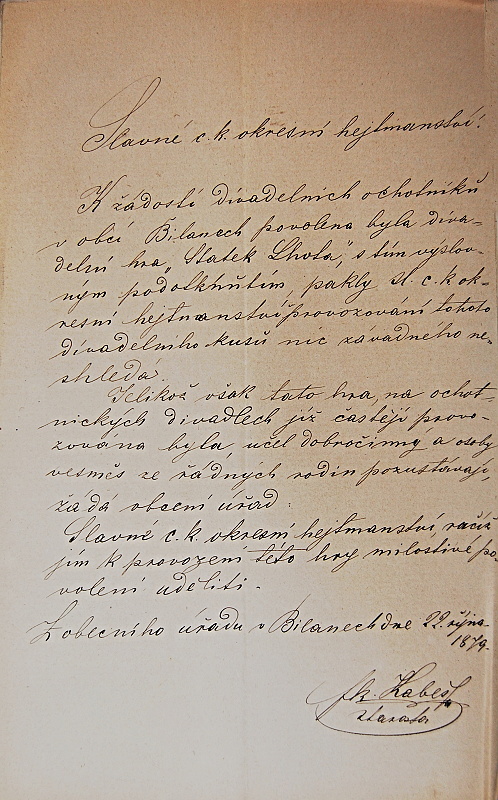 Slavné c. k. okresní hejtmanství!
K žádostí divadelních ochotníků
v obcí Bilanech povolena byla diva-
delní hra „Statek Lhota", s tím výslov-
ným podotknutím, pakly sl. c. k. ok-
resní hejtmanství provozování tohoto
divadelního kusů nic závadného ne-
shledá.
Jelikož však tato hra, na ochot-
nických divadlech již častějí provo-
zována byla, učel dobročinny a osoby
vesměs ze řádných rodin pozustávají,
žádá obecní úřad:
Slavné c. k. okresní hejtmanství račiž
jím k provození této hry milostivé po-
volení udělití.
Z obecního úřadu v Bilanech dne 22. října
1879.
fr. Kabeš
starosta